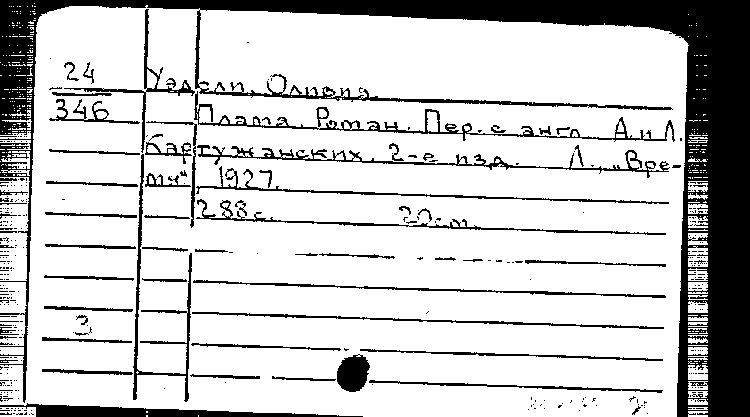 24
346
Уэдсли, Оливия.
Плата. Роман. Пер. с англ. А. и Л.
Картужанских. 2-е изд. Л., „Вре-
мя“, 1927.
288 с. 20 см.
3